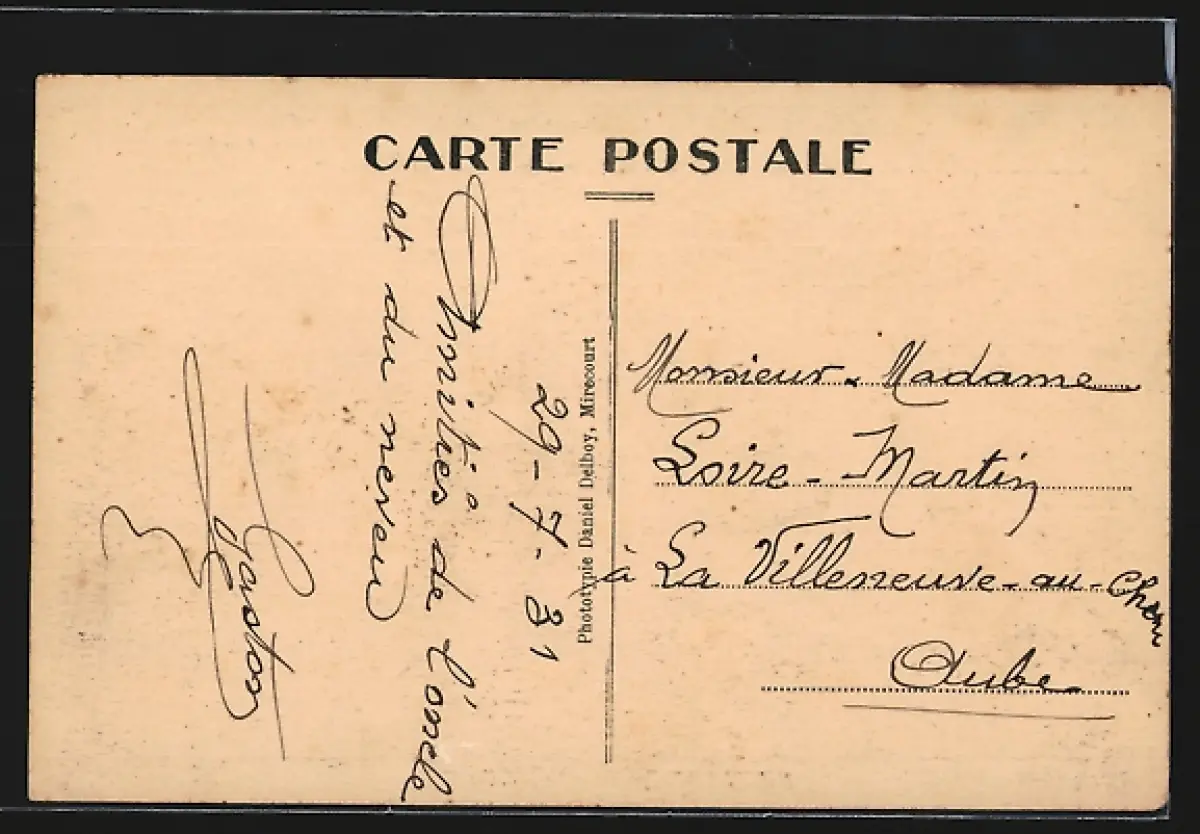 CARTE POSTALE
29-7-31
Amitiés de l'oncle
et du neveu
Gaston
Phototypie Daniel Delboy, Mirecourt
Monsieur & Madame
Loire-Martin
à La Villeneuve-au-Chêne
Aube